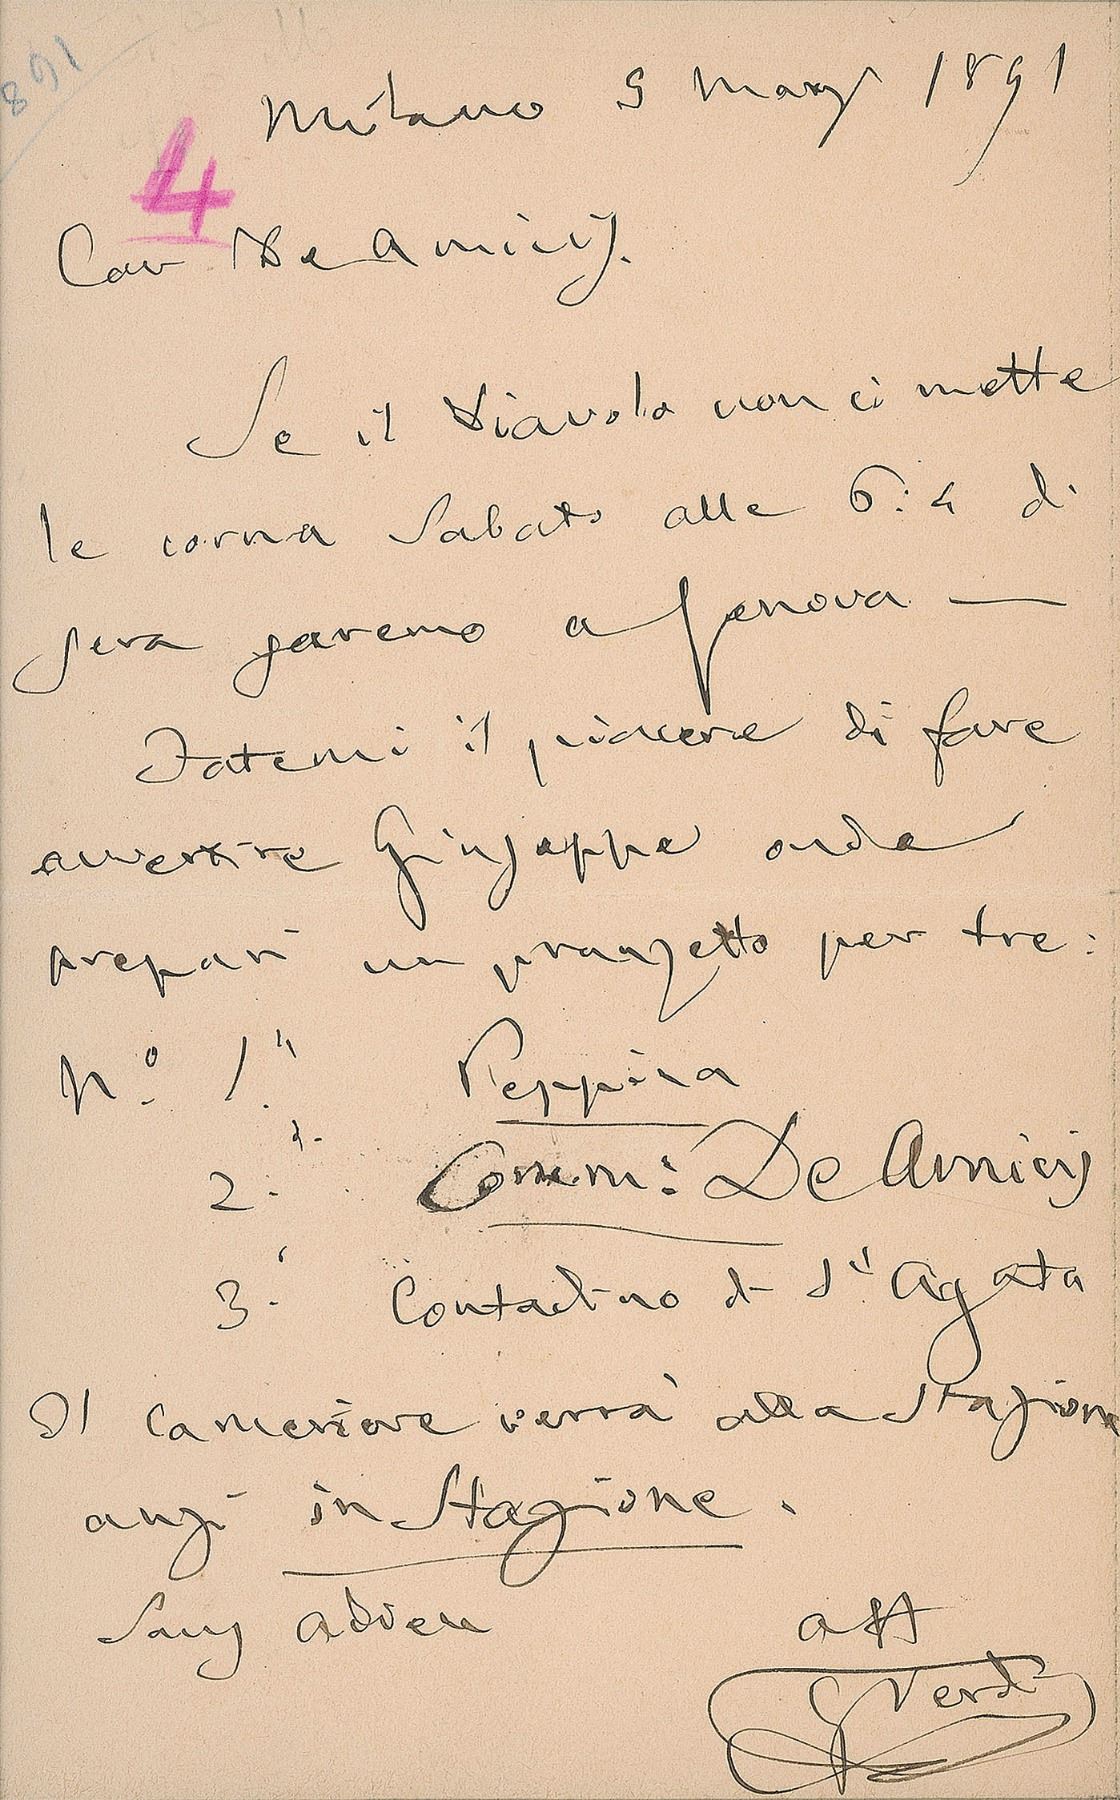 168
Milano 5 Marzo 1891
4
Car De Amicis.
Se il Diavolo non ci mette
le corna Sabato alle 6:4 di
sera saremo a Genova —
Fatemi il piacere di fare
avvertire Giuseppe onde
prepari un pranzetto per tre:
N.º 1.º Peppina
2.º Comm: De Amicis
3.º Contadino di St Agata
Il cameriere verrà alla Stazione
anzi in Stazione.
Sans adieu aff
GVerdi